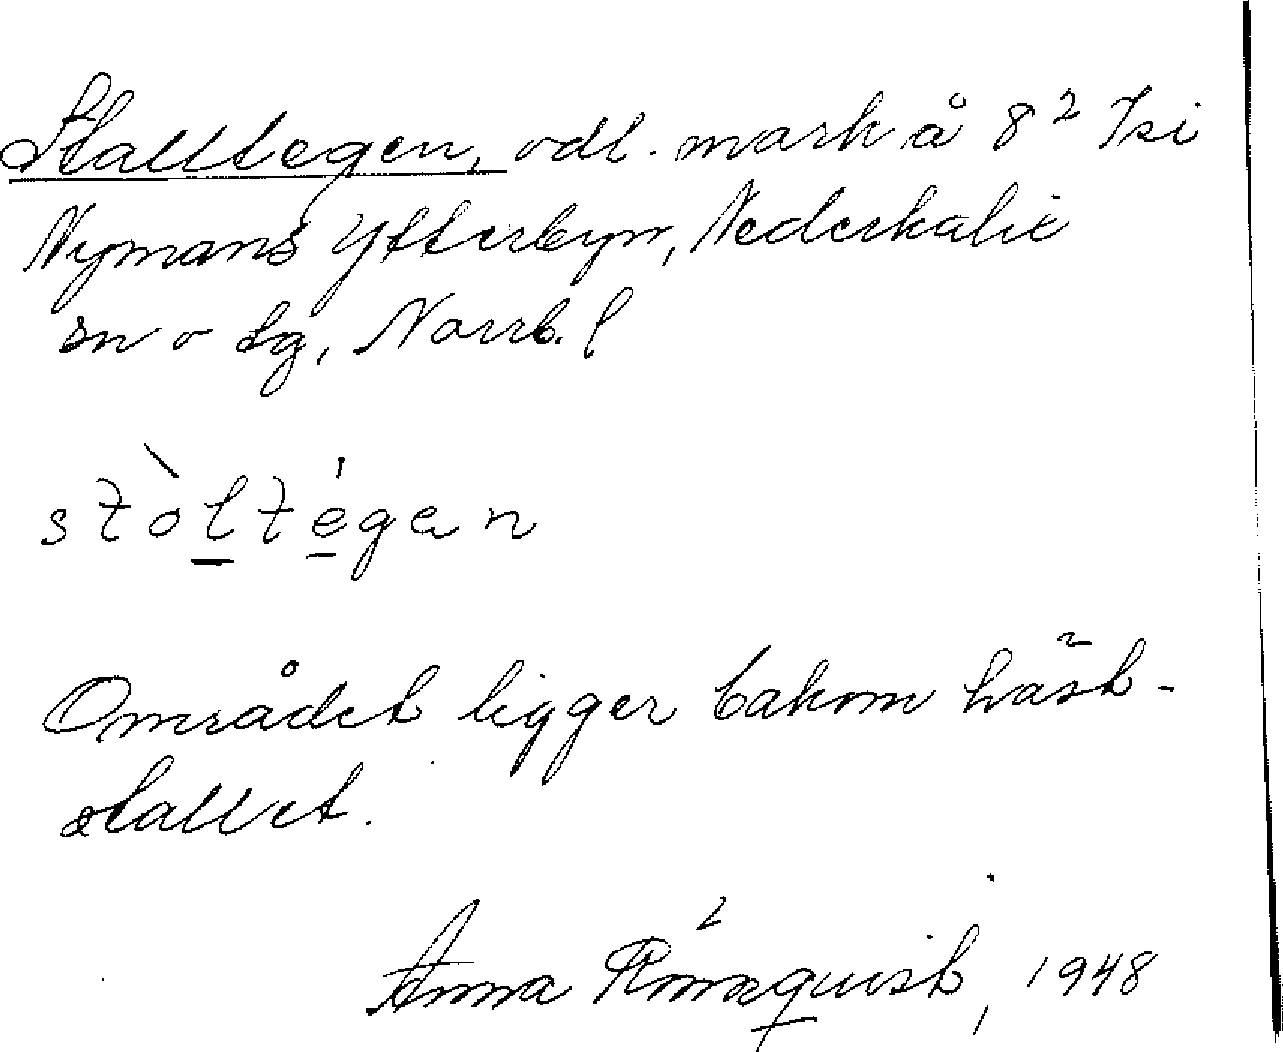 Stalltegen, odl. mark å 8²
Nymans Ytterbyn, Nederkalix
sn o tg, Norrb. l
stòltégen
Området ligger bakom häst-
stallet.
Anna Rönnquist, 1948